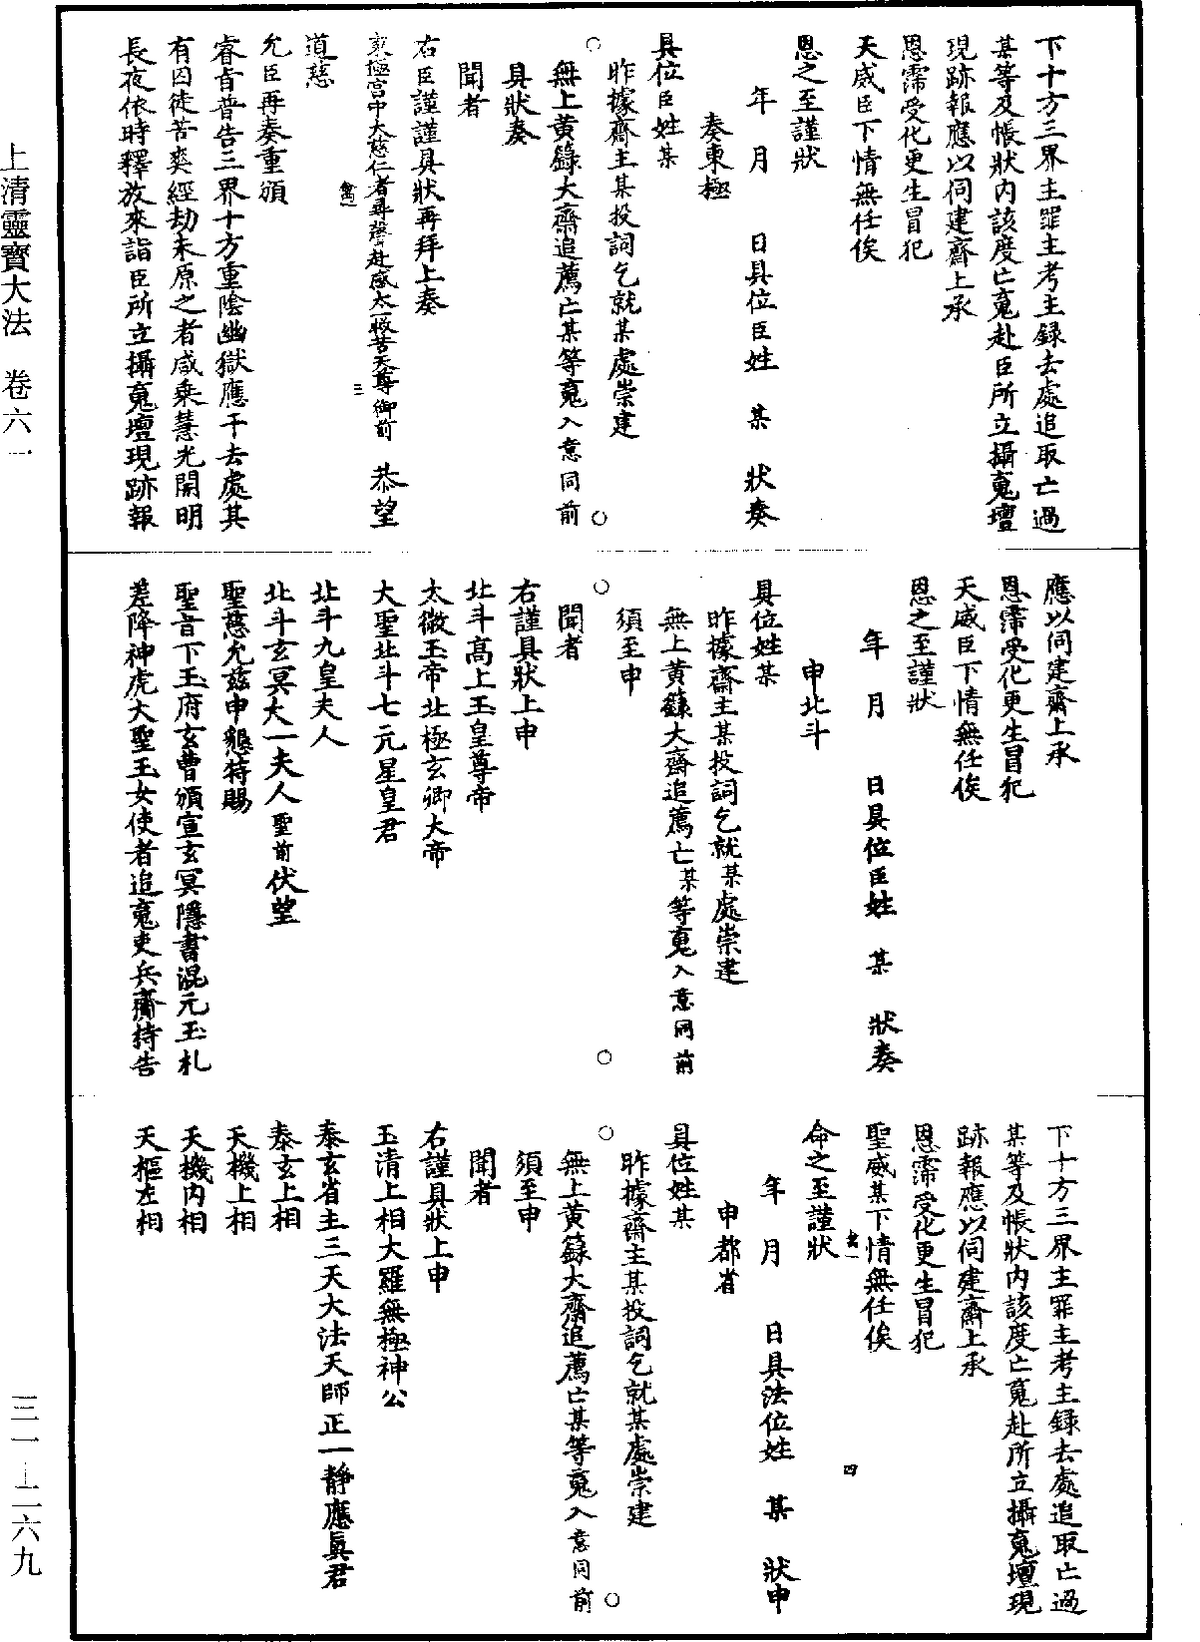 下十方三界主罪主考主録去處追取亡過
某等及帳狀内該度亡䰟赴臣所立攝䰟壇
現跡報應以伺建齋上承
恩霈受化更生冒犯
天威臣下情無任俟
恩之至謹狀
年　月　　日具位臣姓　某　狀奏
奏東極
具位臣姓某
昨據齋主某投詞乞就某處崇建
○　○
無上黄籙大齋追薦亡某等䰟入意同前
具狀奏
聞者
右臣謹謹具狀再拜上奏
東極宫中大慈仁者尋聲赴感太一救苦天尊御前　恭望
三
道慈
允臣再奏重頒
睿旨普告三界十方重陰幽獄應干去處其
有囚徒苦爽經劫未原之者咸乘慧光開明
長夜依時釋放來詣臣所立攝䰟壇現跡報
應以伺建齋上承
恩霈受化更生冒犯
天威臣下情無任俟
恩之至謹狀
年　月　　日具位臣姓　某　狀奏
申北斗
具位姓某
昨據齋主某投詞乞就某處崇建
無上黄籙大齋追薦亡某等䰟入意同前
須至申
○　○
聞者
右謹具狀上申
北斗高上玉皇尊帝
太微玉帝北極玄卿大帝
大聖北斗七元星皇君
北斗九皇夫人
北斗玄冥大一夫人聖前伏望
聖慈允兹申懇特賜
聖旨下玉府玄曹頒宣玄冥隱書混元玉札
差降神虎大聖玉女使者追䰟吏兵齎持告
下十方三界主罪主考主録去處追取亡過
某等及帳狀内該度亡䰟赴所立攝䰟壇現
跡報應以伺建齋上承
恩霈受化更生冒犯
聖威某下情無任俟
四
命之至謹狀
年　月　　日具法位姓　某　狀申
申都省
具位姓某
昨據齋主某投詞乞就某處崇建
○　○
無上黄籙大齋追薦亡某等䰟入意同前
須至申
聞者
右謹具狀上申
玉清上相大羅無極神公
泰玄省主三天大法天師正一靜應真君
泰玄上相
天機上相
天機内相
天樞左相
上清靈寶大法　卷六一
三一—二六九